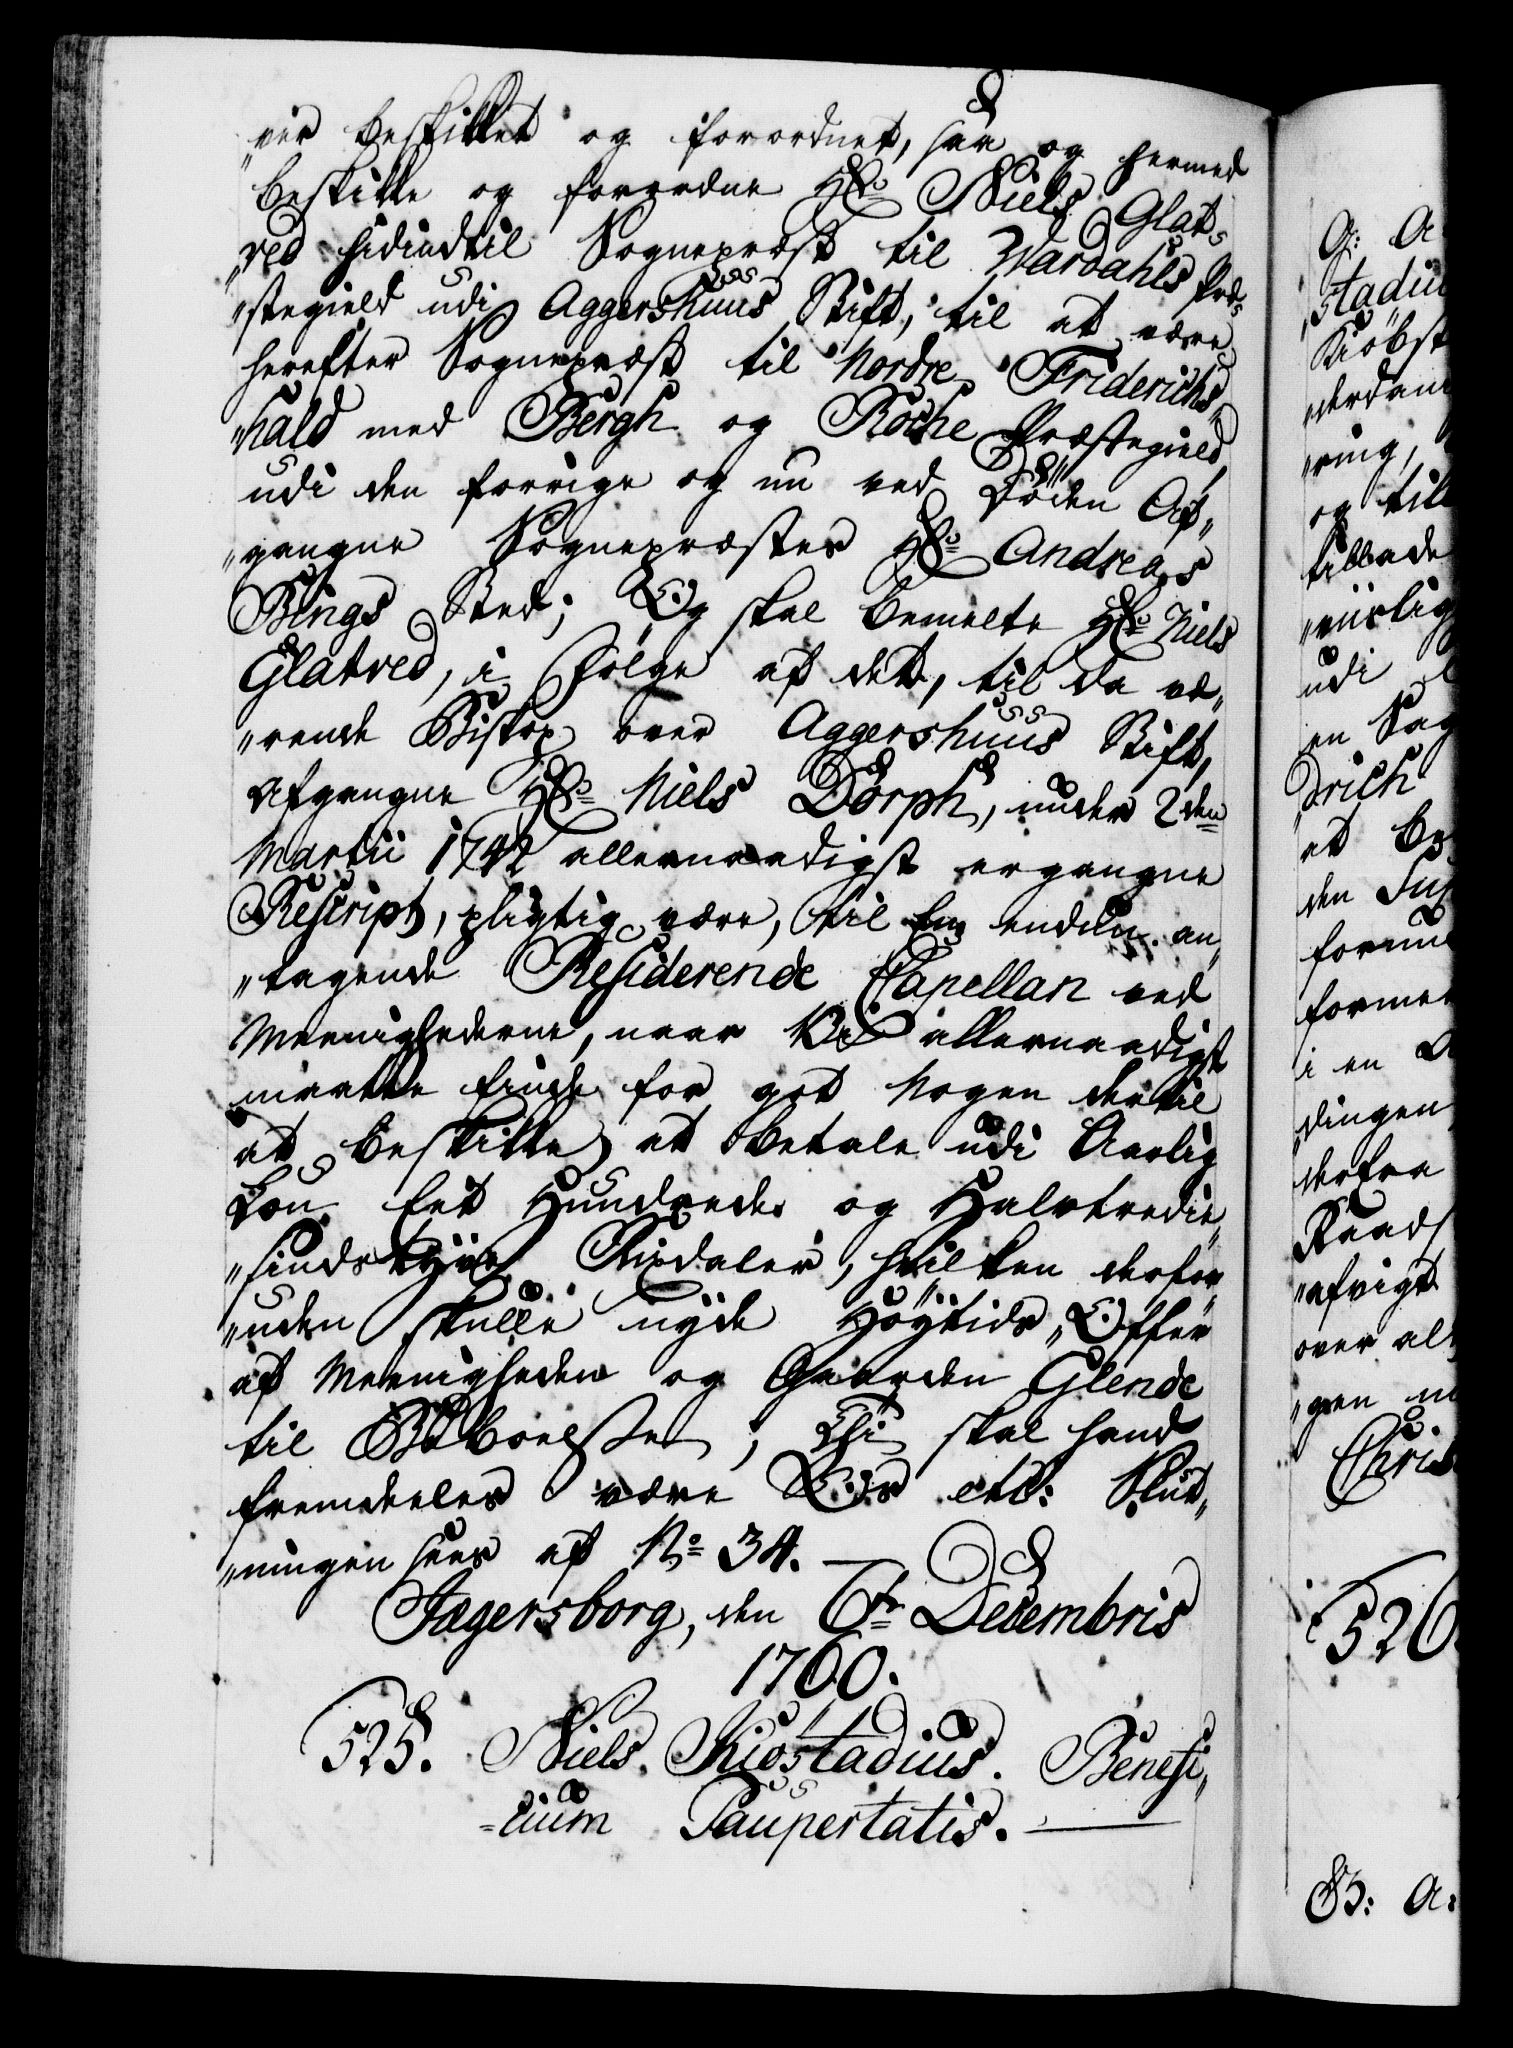 "ver beskikket og forordnet, saa og hermed
beskikke og forordne Hr Niels Glat-
"ved hidindtil Sognepræst til Wardahls Præ-
"stegield udi Aggershuus Stift, til at være
herefter Sognepræst til Nordre Friderichs-
"hald med Bergh og Rochе Præstegield,
udi den forrige og nu ved Døden Af-
"gangne Sognepræstes Hr Andreas
Bings Sted; Og skal bemelte Hr Niels
Glatved, i Følge af det, til da væ-
"rende Biskop over Aggershuus Stift,
afgangne Hr Niels Dorph, under 2den
Martii 1742 allernaadigst ergangne
Rescript, pligtig være, til En endelig an-
"tagende Residerende Capellan ved
Meenighederne, naar Vi allernaadigst
maatte finde for got Nogen dertil
at beskikke, at betale udi Aarlig
Løn Eet Hundrede og Halvtredie-
"sindstyve Rixdaler, hvilken desfor-
"uden skulle nyde Høytids-Offer
af Meenigheden og Gaarden Glende
til Beboelse; Thi skal hand
fremdeeles være Os etc: Slut-
"ningen sees af No 34. —
Jægersborg, den 6te Decembris
1760.
525. Niels Kiøstadius. Benefi-
-cium Paupertatis. —
G: A
"stadiu
Kiøbst
"ring,
og til
tillade
udi
en Sag
"drich
at be
formu
i en
"dingen
derfra
Raads
"afvigt
over al
"gen
Chris
526.
B: A: